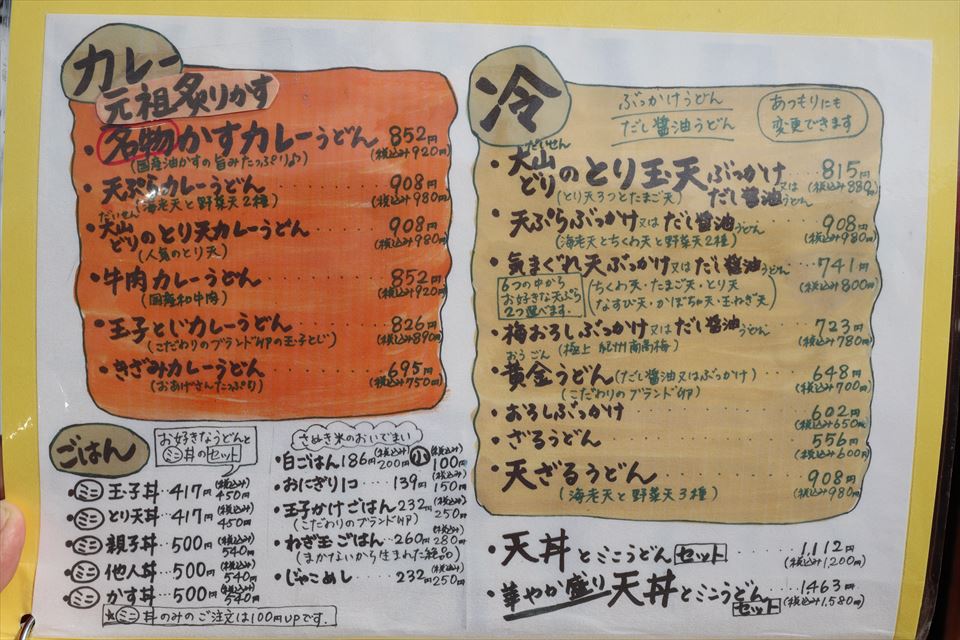 カレー
元祖炙りかす
・名物かすカレーうどん 852円
(国産油かすの旨みたっぷり♪) (税込み920円)
・天ぷらカレーうどん 908円
(海老天と野菜天2種) (税込み980円)
だいせん
・大山どりのとり天カレーうどん 908円
(人気のとり天) (税込み980円)
・牛肉カレーうどん 852円
(国産和牛肉) (税込み920円)
・玉子とじカレーうどん 826円
(こだわりのブランド卵の玉子とじ) (税込み890円)
・きざみカレーうどん 695円
(おあげさんたっぷり) (税込み750円)
ごはん
お好きなうどんと
ミニ丼のセット
・ミニ玉子丼 417円 (税込み)450円
・ミニとり天丼 417円 (税込み)450円
・ミニ親子丼 500円 (税込み)540円
・ミニ他人丼 500円 (税込み)540円
・ミニかす丼 500円 (税込み)540円
★ミニ丼のみのご注文は100円UPです.
さぬき米のおいでまい
・白ごはん 186円 (税込み)200円 小 (税込み)100円
・おにぎり1コ 139円 (税込み)150円
・玉子かけごはん 232円 (税込み)250円
(こだわりのブランド卵)
・ねぎ玉ごはん 260円 (税込み)280円
(まかないから生まれた絶品)
・じゃこめし 232円 (税込み)250円
冷
ぶっかけうどん
だし醤油うどん
あつもりにも
変更できます
だいせん
・大山どりのとり玉天ぶっかけ又はだし醤油うどん 815円
(とり天3つとたまご天) (税込み880円)
・天ぷらぶっかけ又はだし醤油うどん 908円
(海老天とちくわ天と野菜天2種) (税込み980円)
・気まぐれ天ぶっかけ又はだし醤油うどん 741円
(税込み800円)
6つの中から
お好きな天ぷら
2つ選べます.
(ちくわ天・たまご天・とり天
なすび天・かぼちゃ天・玉ねぎ天)
・梅おろしぶっかけ又はだし醤油うどん 723円
(極上 紀州南高梅) (税込み780円)
おうごん
・黄金うどん(だし醤油又はぶっかけ) 648円
(こだわりのブランド卵) (税込み700円)
・おろしぶっかけ 602円
(税込み650円)
・ざるうどん 556円
(税込み600円)
・天ざるうどん 908円
(海老天と野菜天3種) (税込み980円)
・天丼とミニうどんセット 1,112円
(税込み1,200円)
・華やか盛り天丼とミニうどんセット 1463円
(税込み1,580円)